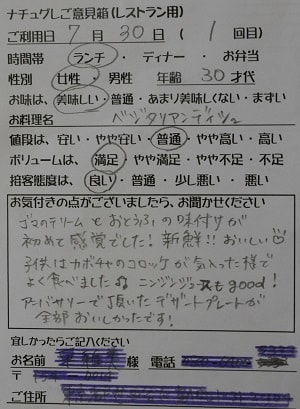 ナチュグレご意見箱(レストラン用)
ご利用日 7月30日 ( 1 回目)
時間帯 ランチ ・ ディナー ・ お弁当
性別 女性 ・ 男性 年齢 30才代
お味は、美味しい・普通・あまり美味しくない・まずい
お料理名 ベジタリアンディッシュ
値段は、安い・やや安い・普通・やや高い・高い
ボリュームは、満足・やや満足・やや不足・不足
接客態度は、良い・普通・少し悪い・悪い
お気付きの点がございましたら、お聞かせください
ゴマのテリーム とおとうふの味付けが
初めて感覚でした!新鮮!!おいしい♡
子供はカボチャのコロッケが気入った様で
よく食べました♫ ニンジンジュースもgood!
アニバサリーで頂いたデザートプレートが
全部おいしかったです!
宜しかったらご記入ください
お名前 様 電話
〒
ご住所